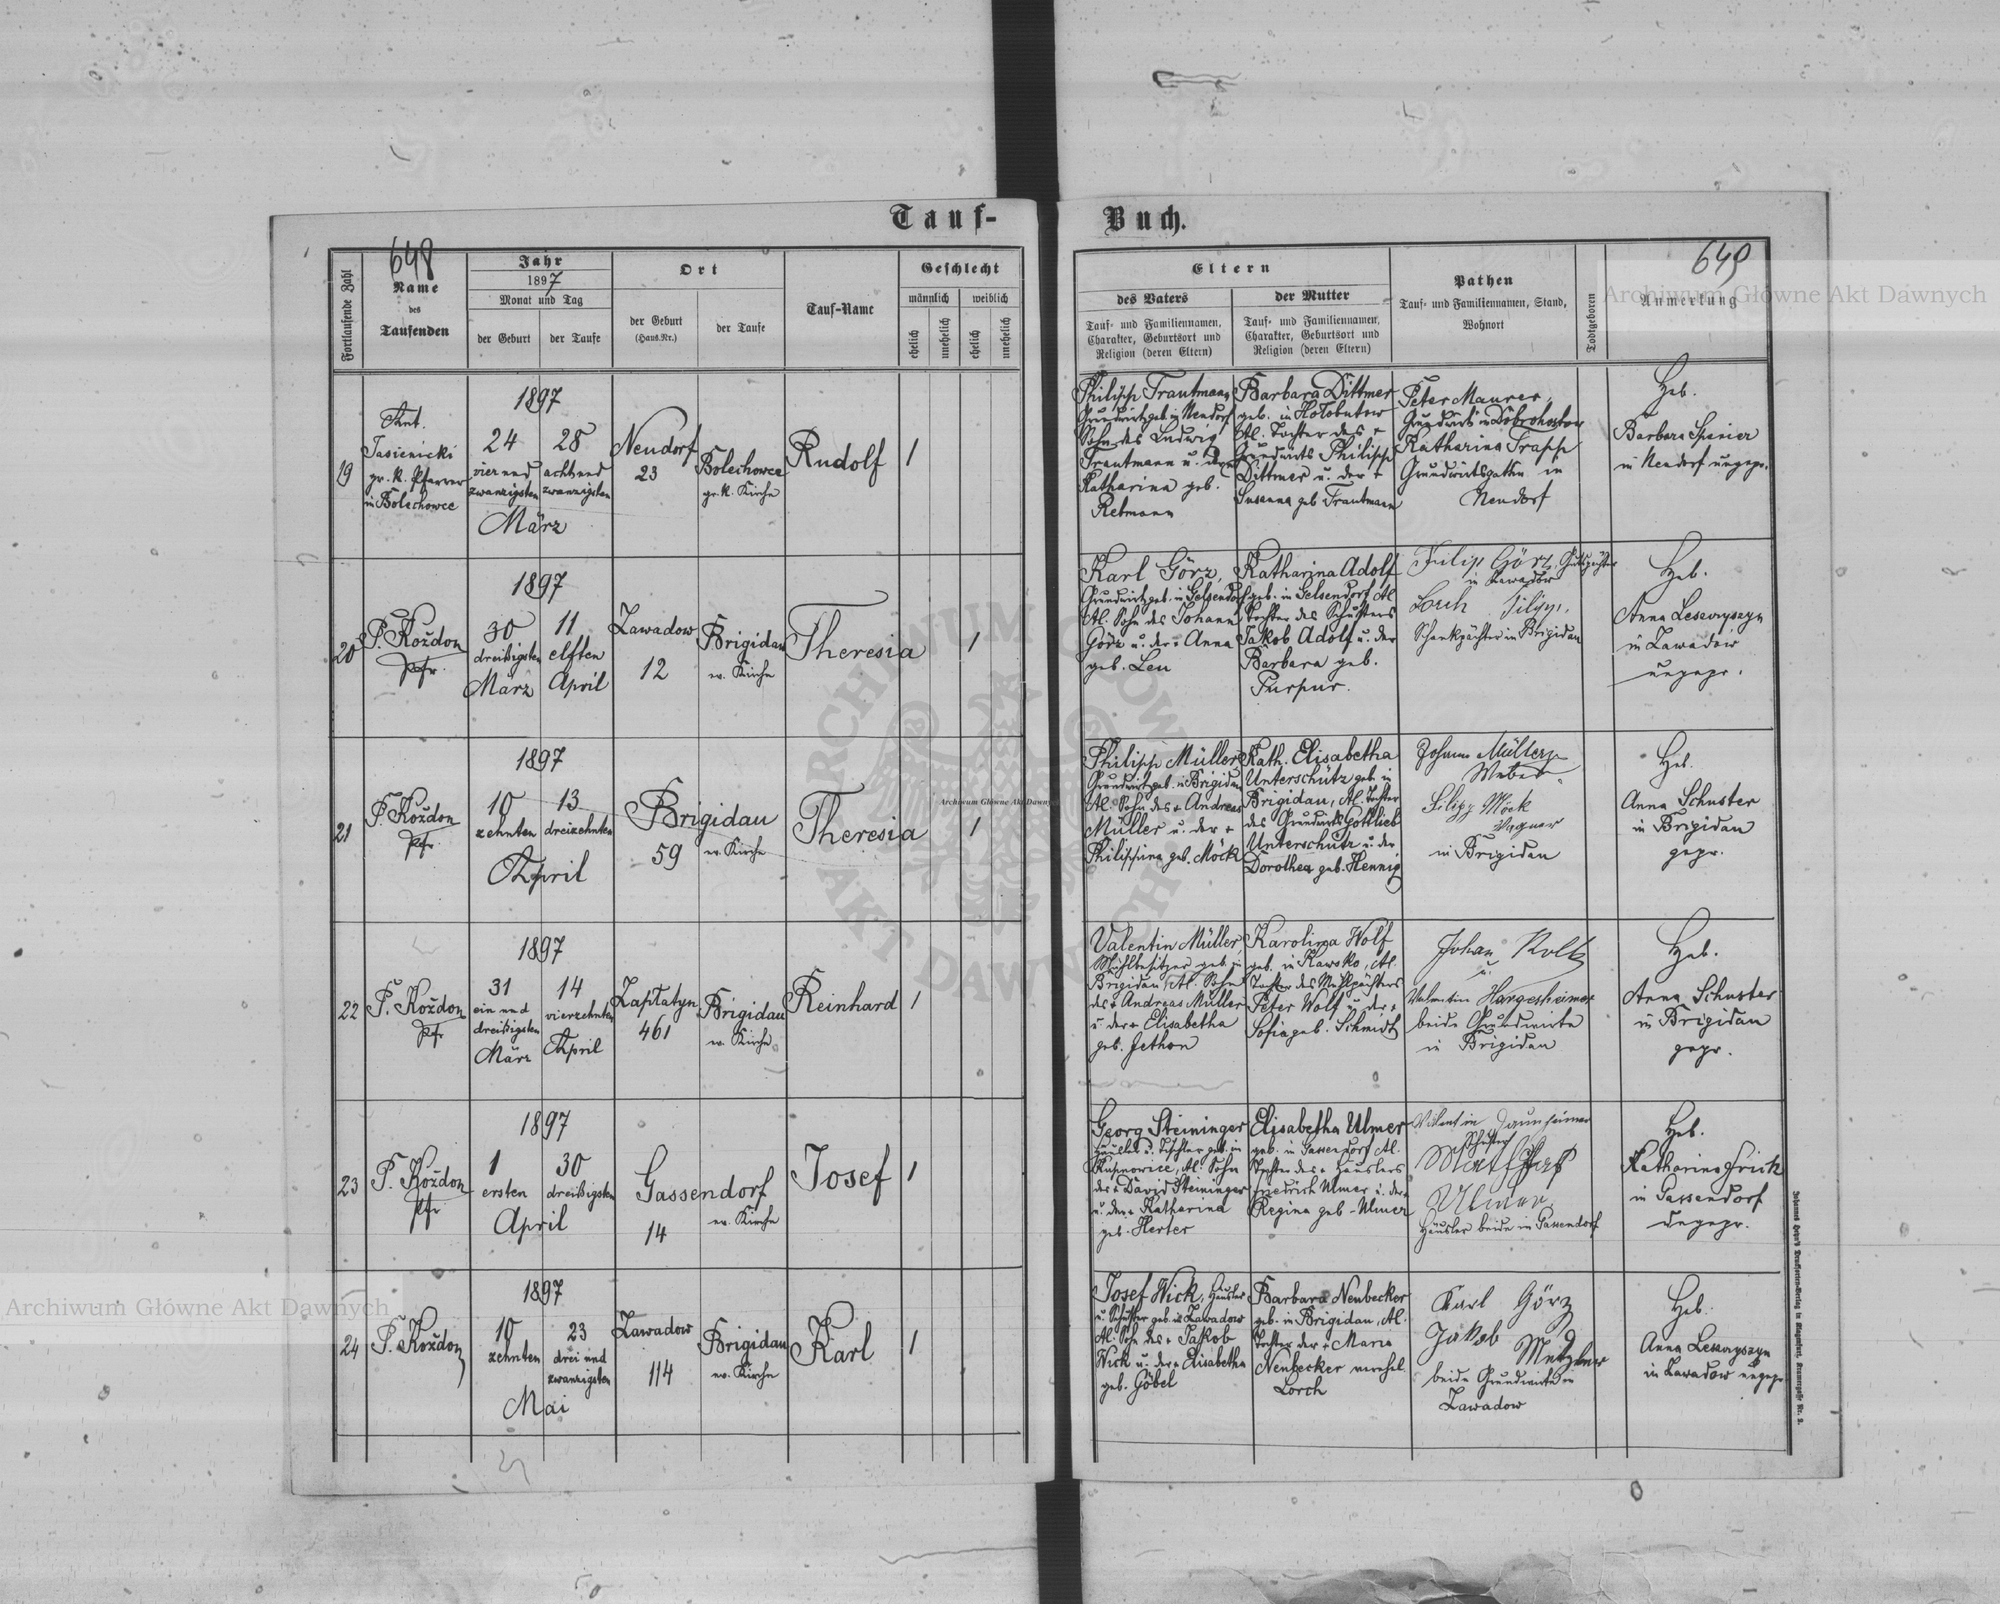 Tauf-
648
Fortlaufende Zahl
Name
des
Taufenden
Jahr
1897
Monat und Tag
der Geburt
der Taufe
Ort
der Geburt
(Haus.Nr.)
der Taufe
Tauf-Name
Geschlecht
männlich
weiblich
ehelich
unehelich
ehelich
unehelich
19
Ant.
Jasienicki
gr. k. Pfarrer
in Bolechowce
1897
24
vier und
zwanzigsten
28
acht und
zwanzigsten
März
Neudorf
23
Bolechowce
gr. k. Kirche
Rudolf
1
20
P. Koždon
Pfr.
1897
30
dreißigsten
März
11
elften
April
Zawadow
12
Brigidau
ev. Kirche
Theresia
1
21
P. Koždon
Pfr.
1897
10
zehnten
13
dreizehnten
April
Brigidau
59
ev. Kirche
Theresia
1
22
P. Koždon
Pfr.
1897
31
ein und
dreißigsten
März
14
vierzehnten
April
Zaplatyn
461
Brigidau
ev. Kirche
Reinhard
1
23
P. Koždon
Pfr
1897
1
ersten
30
dreißigsten
April
Gassendorf
14
ev. Kirche
Josef
1
24
P. Koždon
1897
10
zehnten
23
drei und
zwanzigsten
Mai
Zawadow
114
Brigidau
ev. Kirche
Karl
1
Buch.
649
Eltern
des Vaters
Tauf- und Familiennamen,
Charakter, Geburtsort und
Religion (deren Eltern)
der Mutter
Tauf- und Familiennamen,
Charakter, Geburtsort und
Religion (deren Eltern)
Pathen
Tauf- und Familiennamen, Stand,
Wohnort
Todtgeboren
Anmerkung
Philipp Trautmann
Grundwirt geb. in Neudorf
Sohn des Ludwig
Trautmann u. der
Katharina geb.
Retmann
Barbara Dittmer
geb. in Holobutow
Al. Tochter des +
Grundwirts Philipp
Dittmer u. der +
Susanna geb. Trautmann
Peter Maurer,
Grundwirt in Dobrohostow
Katharina Trapp
Grundwirtsgattin in
Neudorf
Heb.
Barbara
in Neudorf ungepr.
Karl Görz,
Grundwirt geb. in Gelsendorf
Al. Sohn des Johann
Görz u. der + Anna
geb. Leu
Katharina Adolf
geb. in Gelsendorf Al
Tochter des Schusters
Jakob Adolf u. der
Barbara geb.
Purpur.
Filip Görz, Gutspächter
in Zawadow
Lorch Filip,
Schankpächter in Brigidau
Heb.
Anna
in Zawadow
ungepr.
Philipp Müller
Grundwirt geb. in Brigidau
Al. Sohn des + Andreas
Müller u. der +
Philippina geb. Möck
Kath. Elisabetha
Unterschütz geb. in
Brigidau, Al. Tochter
des Grundwirts Gottlieb
Unterschütz u. der
Dorothea geb. Hennig
Johann Müller
Weber
Filipp Möck
Wagner
in Brigidau
Heb.
Anna Schuster
in Brigidau
gepr.
Valentin Müller,
Mühlbesitzer geb. in
Brigidau, Al. Sohn
des + Andreas Müller
u. der + Elisabetha
geb. Jethon
Karolina Wolf
geb. in Kawsko, Al.
Tochter des Mühlpächters
Peter Wolf u. der +
Sofia geb. Schmidt
Johan Koltz
u.
Valentin Hargesheimer
beide Grundwirte
in Brigidau
Heb.
Anna Schuster
in Brigidau
gepr.
Georg Steininger
Häusler u. Tischler geb. in
Kupnowice, Al. Sohn
des + David Steininger
u. der + Katharina
geb. Herter
Elisabetha Ulmer
geb. in Gassendorf Al.
Tochter des + Häuslers
Friedrich Ulmer u. der +
Regina geb. Ulmer
Valentin Daunheimer
Schuster
Ulmer
Häusler beide in Gassendorf
Heb.
Katharina Frick
in Gassendorf
ungepr.
Josef Wick, Häusler
u. Schuster geb. in Zawadow
Al. Sohn des + Jakob
Wick u. der + Elisabetha
geb. Göbel
Barbara Neubecker
geb. in Brigidau, Al.
Tochter der + Maria
Neubecker verehel.
Lorch
Karl Görz
Jakob Metzler
beide Grundwirte in
Zawadow
Heb.
Anna
in Zawadow ungepr.
Archiwum Główne Akt Dawnych
Archiwum Główne Akt Dawnych
Archiwum Główne Akt Dawnych
ARCHIWUM GŁÓWNE AKT DAWNYCH